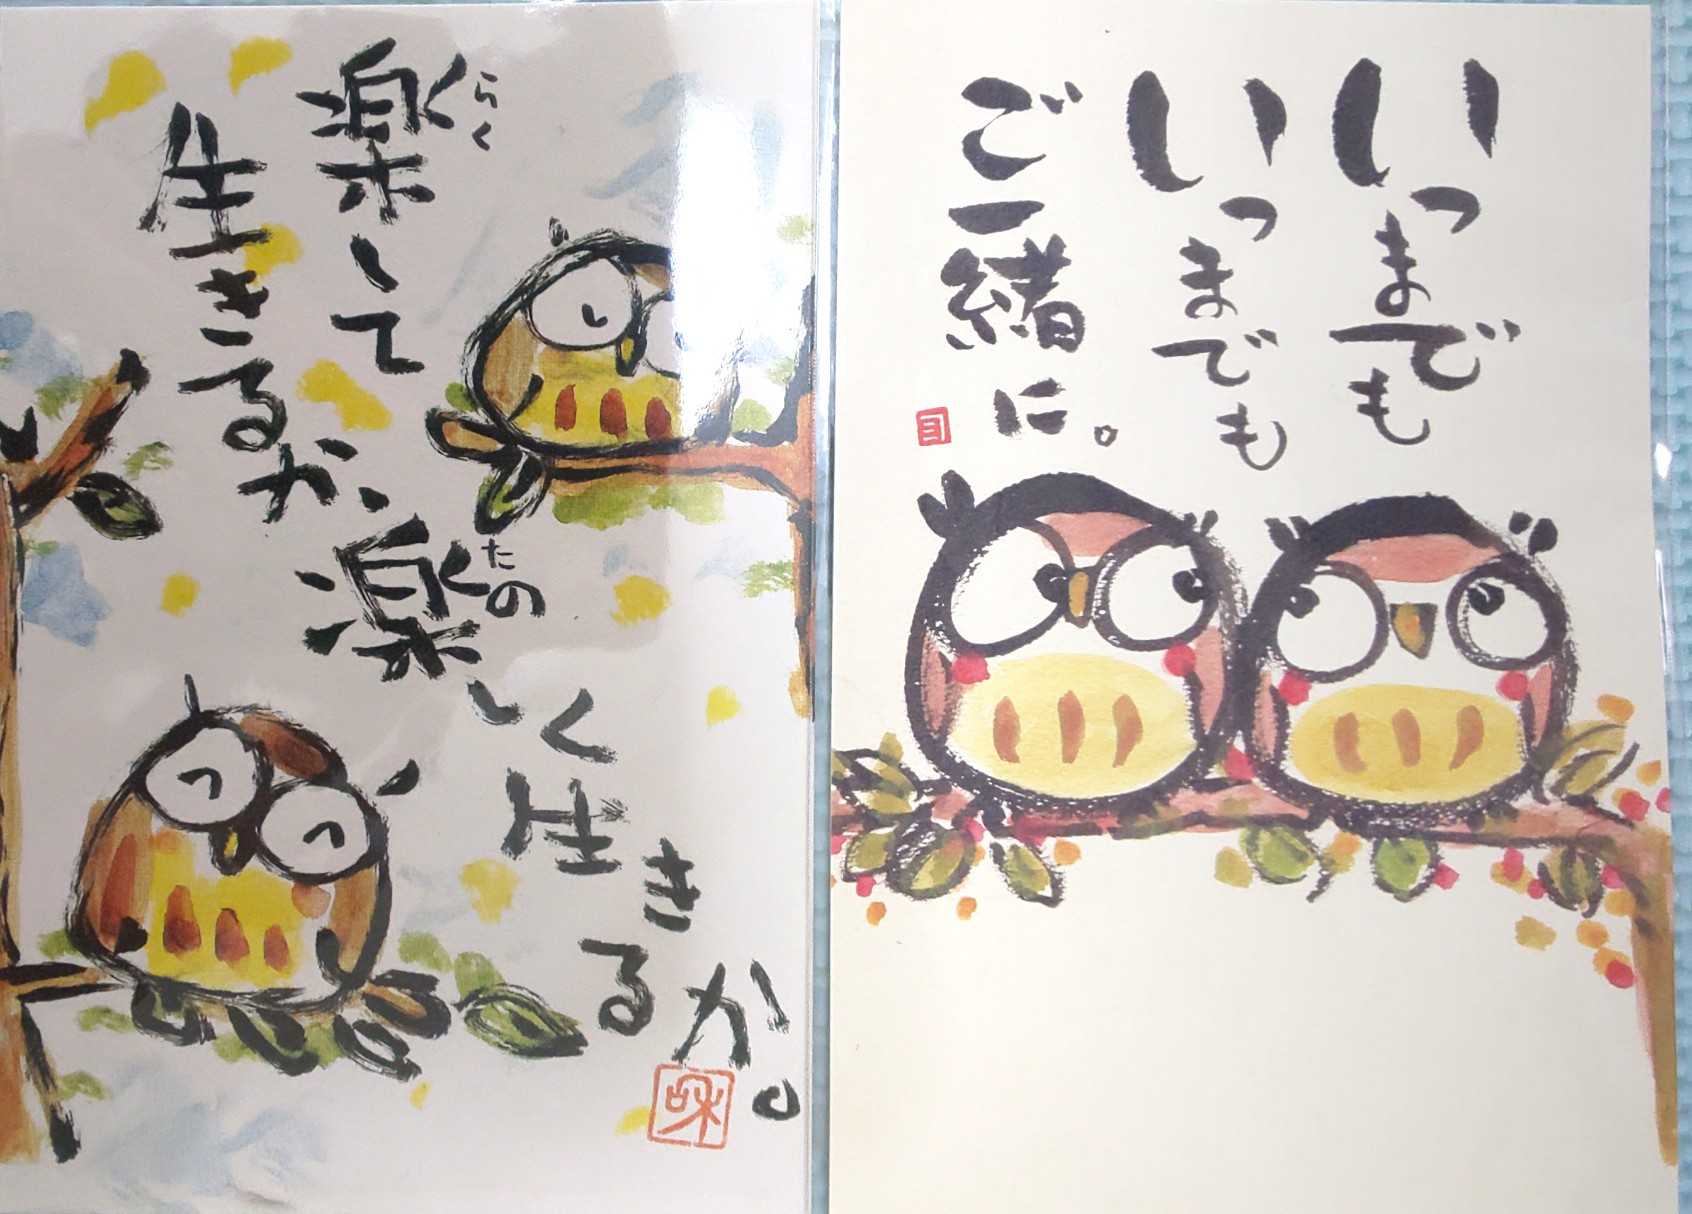 楽して
らく
生きるか、
楽しく生きるか。
たの
いつまでも
いつまでも
ご一緒に。